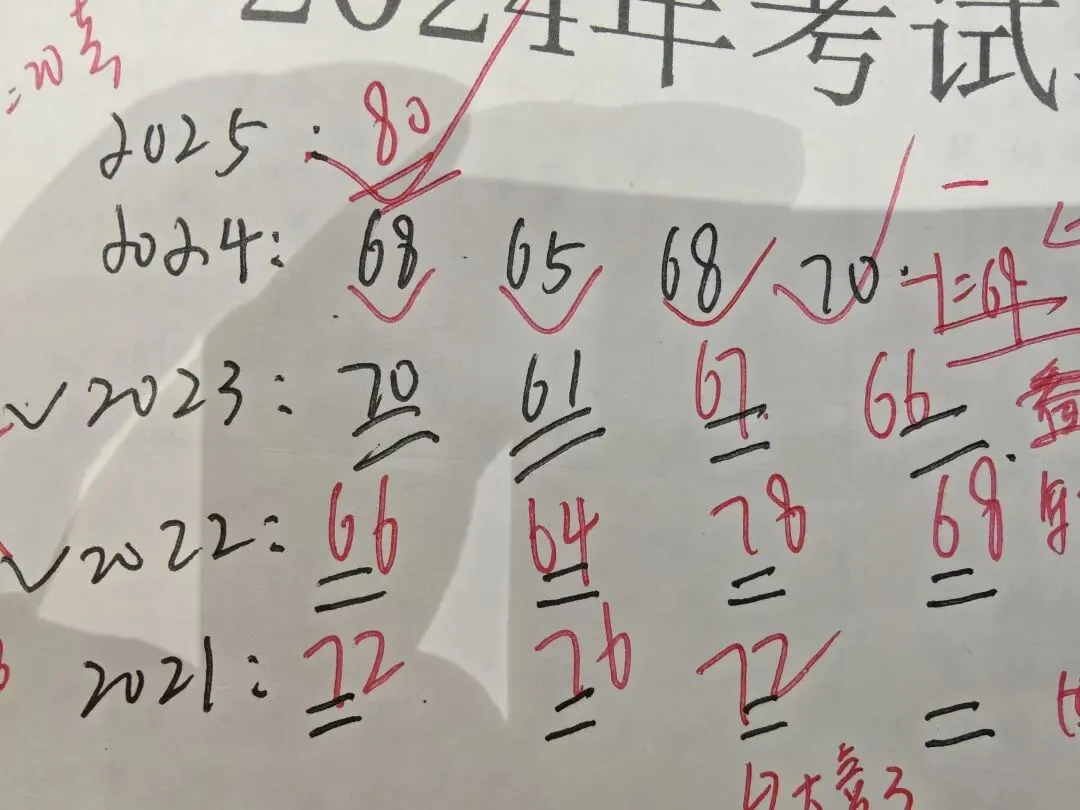 2024年考试
=20考
2025: 80
2024: 68 65 68 70.
2023: 70 61 67. 66
2022: 66 64 78 68
2021: 72 76 72